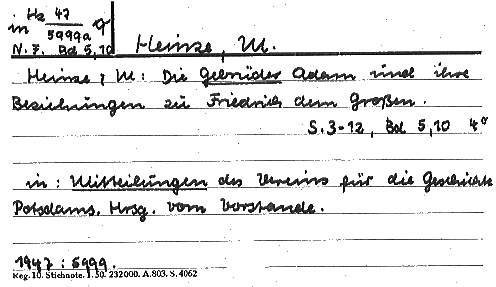 in Hz 47
5999a q
N. F. Bd 5,10
Heinze, M.
Heinze, M: Die Gebrüder Adam und ihre
Beziehungen zu Friedrich dem Großen.
S. 3-12, Bd 5,10 4°
in: Mitteilungen des Vereins für die Geschichte
Potsdams. Hrsg. vom Vorstande.
1947 : 5999.
Reg. 10. Stichnote. 1.50. 232000. A.803. S.4062